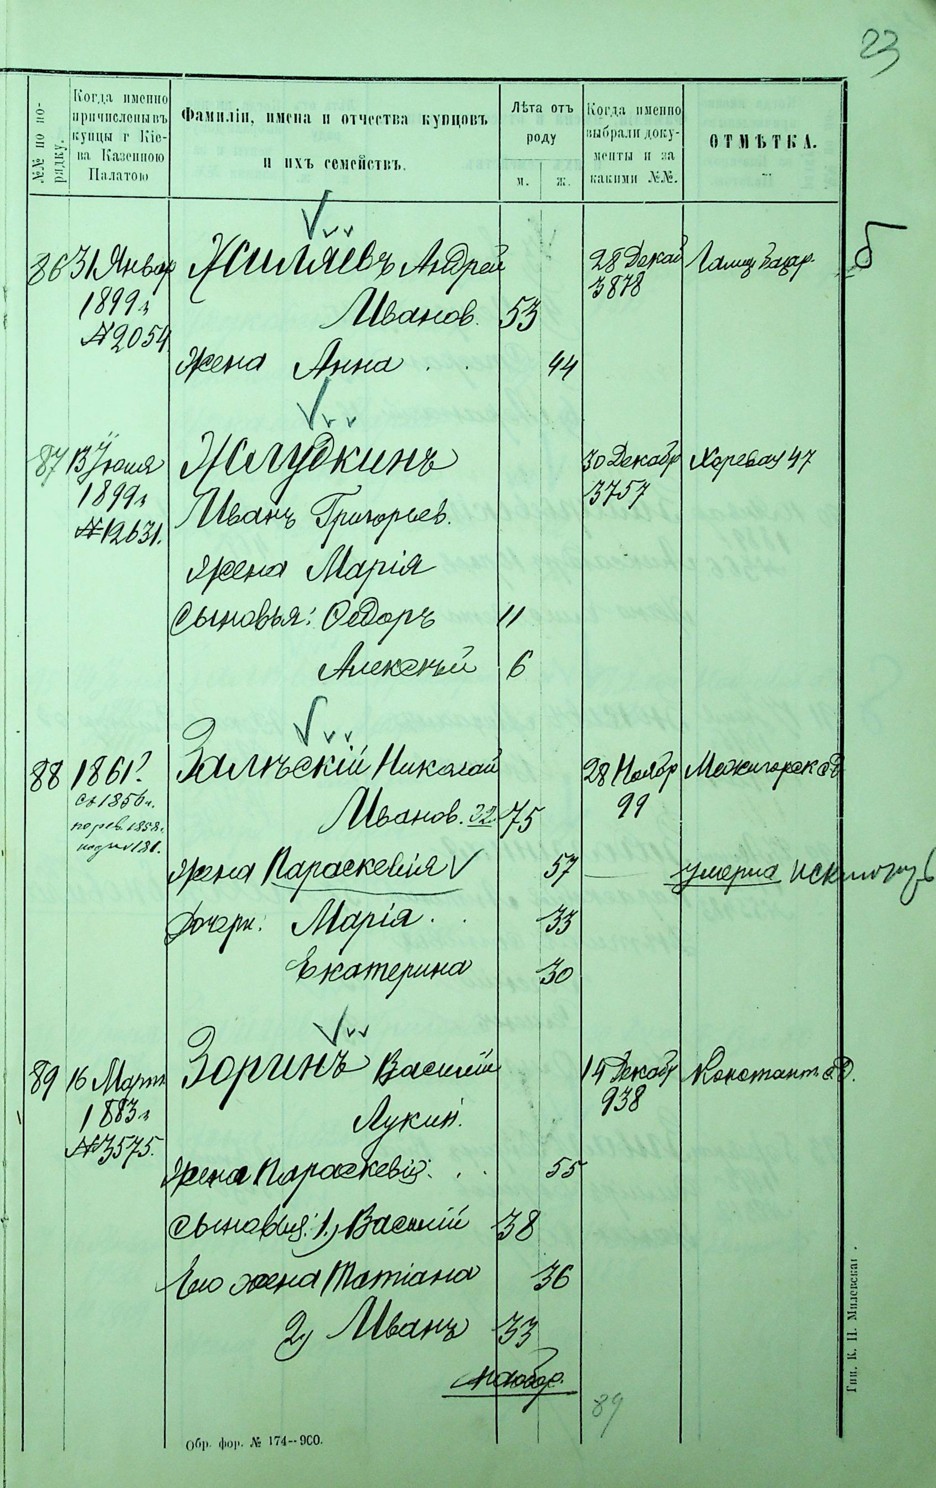 23
№№ по по-
рядку.
Когда именно
причислены въ
купцы г Кіе-
ва Казенною
Палатою
Фамиліи, имена и отчества купцовъ
и ихъ семействъ.
Лѣта отъ
роду
м.
ж.
Когда именно
выбрали доку-
менты и за
какими №№.
ОТМѢТКА.
86 31 Январ Жиляевъ Андрей 28 Декаб
1899 г Иванов. 53 3878
№2054
Жена Анна 44
б
87 13 Іюля Жлудкинъ 30 Декабр Хоревая 47
1899 г Иванъ Григорьев. 3757
№12631.
Жена Марія
Сыновья: Ѳедоръ 11
Алексѣй 6
88 1861? Залѣскій Николай 28 Ноябр Межигорск д
съ 1856 г. Иванов. 32 75 99
по рев. 1858 г.
Жена Параскевія 57 умерла
Дочери: Марія 33
Екатерина 30
89 16 Март Зоринъ Василій 14 Декабр Константин. д.
1883 г Лукин. 938
№3575.
Жена Параскевія. 55
Сыновья: 1) Василій 38
Его жена Татіана 36
2) Иванъ 33
89
Обр. фор. № 174--900.
Тип. К. Н. Милевскаг.